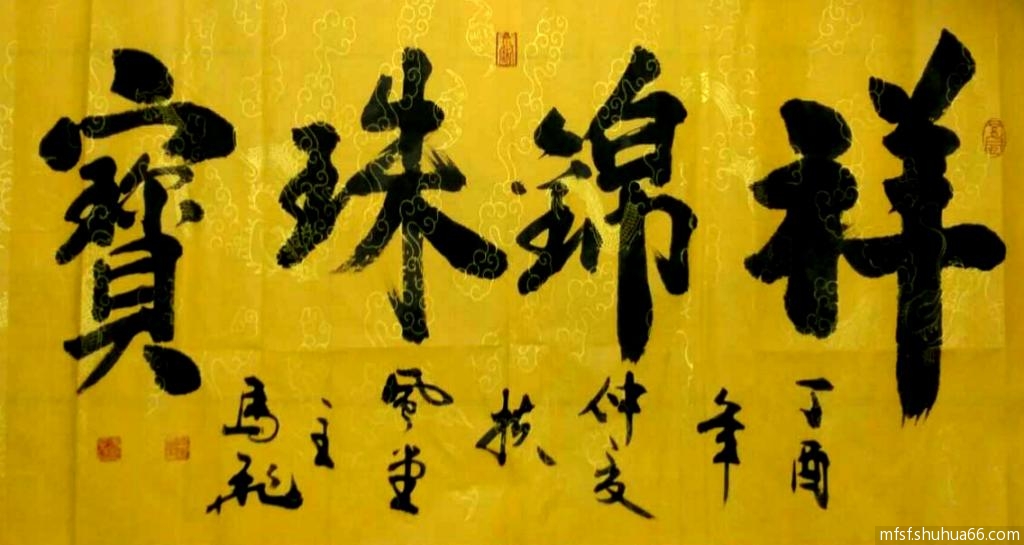 祥錦珠寶
丁酉
年
仲夏
扶
風堂
主
馬
mfsf.shuhua66.com